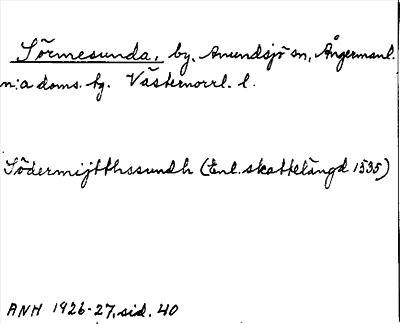 Sörmesunda, by, Anundsjö sn, Ångermanl.
n:a doms. hg. Västernorrl. l.
Södermijtthssundh (Enl. skattelängd 1535)
ANH 1926-27, sid. 40